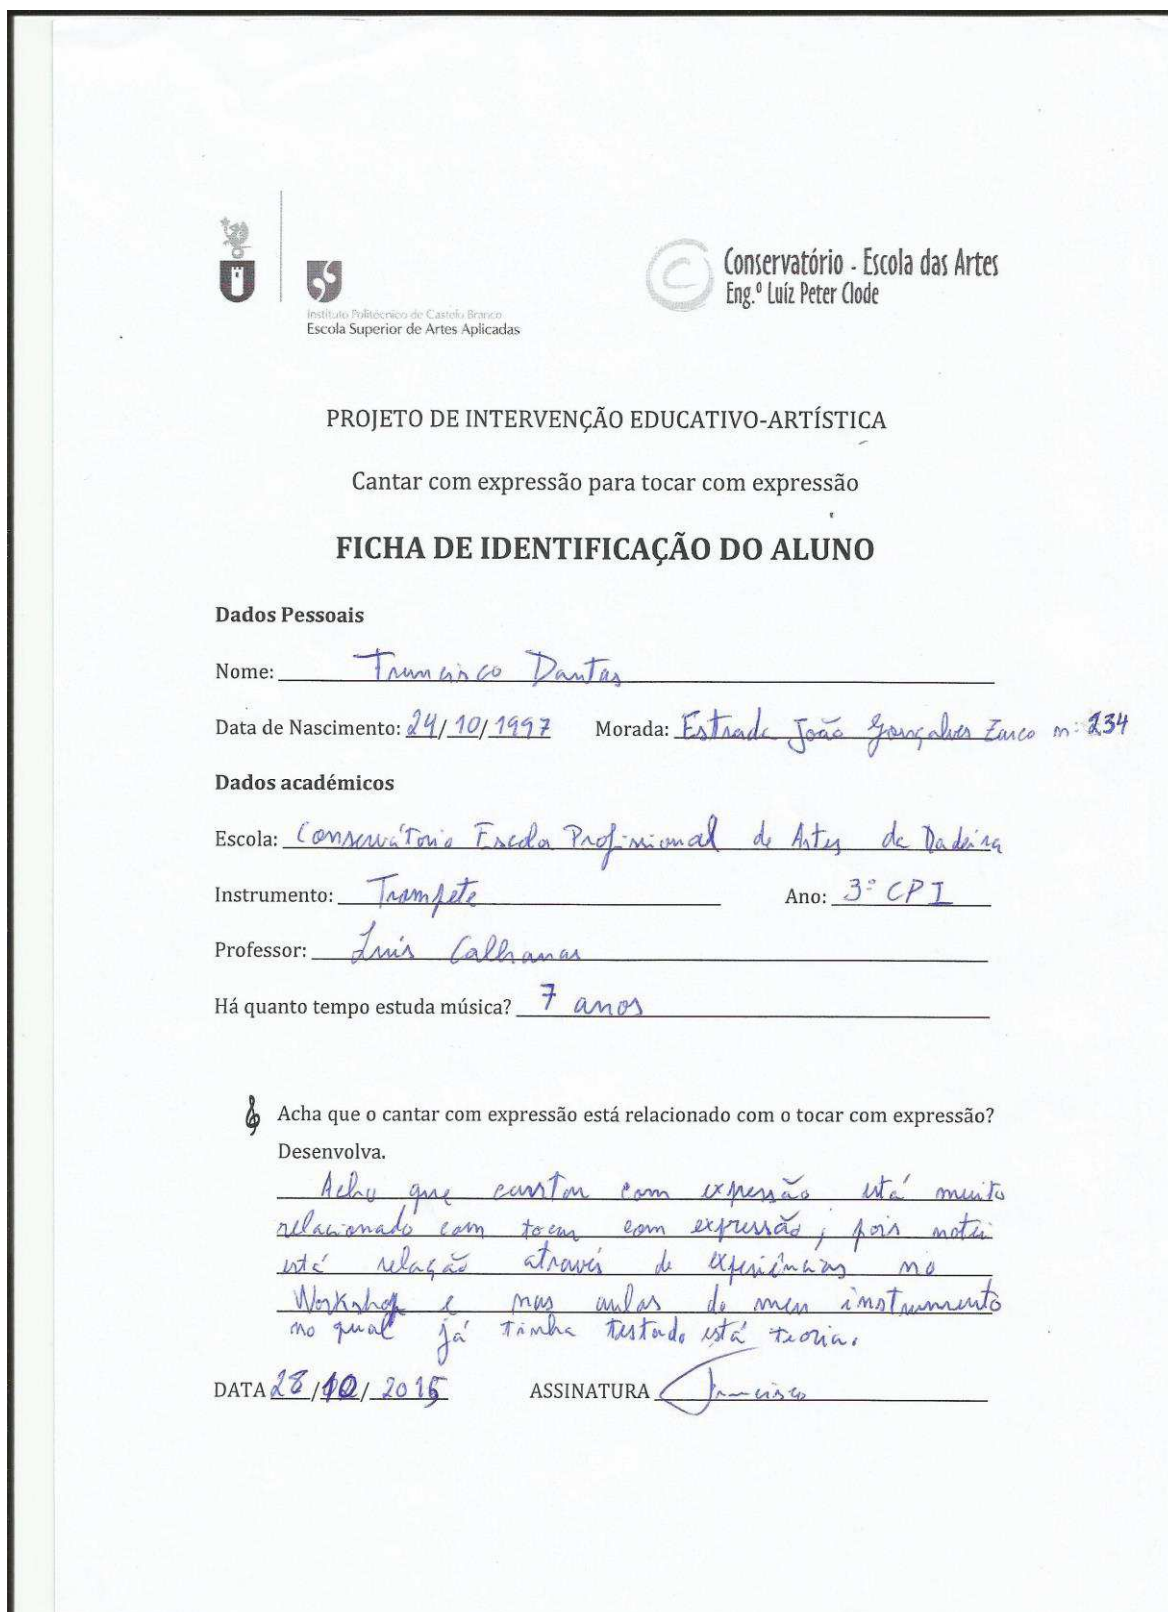 Instituto Politécnico de Castelo Branco
Escola Superior de Artes Aplicadas
Conservatório - Escola das Artes
Eng.º Luíz Peter Clode
PROJETO DE INTERVENÇÃO EDUCATIVO-ARTÍSTICA
Cantar com expressão para tocar com expressão
FICHA DE IDENTIFICAÇÃO DO ALUNO
Dados Pessoais
Nome: Francisco Dantas
Data de Nascimento: 24/10/1997 Morada: Estrada João Gonçalves Zarco nº 234
Dados académicos
Escola: Conservatório Escola Profissional de Artes da Madeira
Instrumento: Trompete Ano: 3º CPI
Professor: Luís Calhanas
Há quanto tempo estuda música? 7 anos
Acha que o cantar com expressão está relacionado com o tocar com expressão?
Desenvolva.
Acho que cantar com expressão está muito
relacionado com tocar com expressão, pois notei
está relação através de experiências no
Workshop e nas aulas do meu instrumento
no qual já tinha testado está teoria.
DATA 28/10/2015 ASSINATURA Francisco